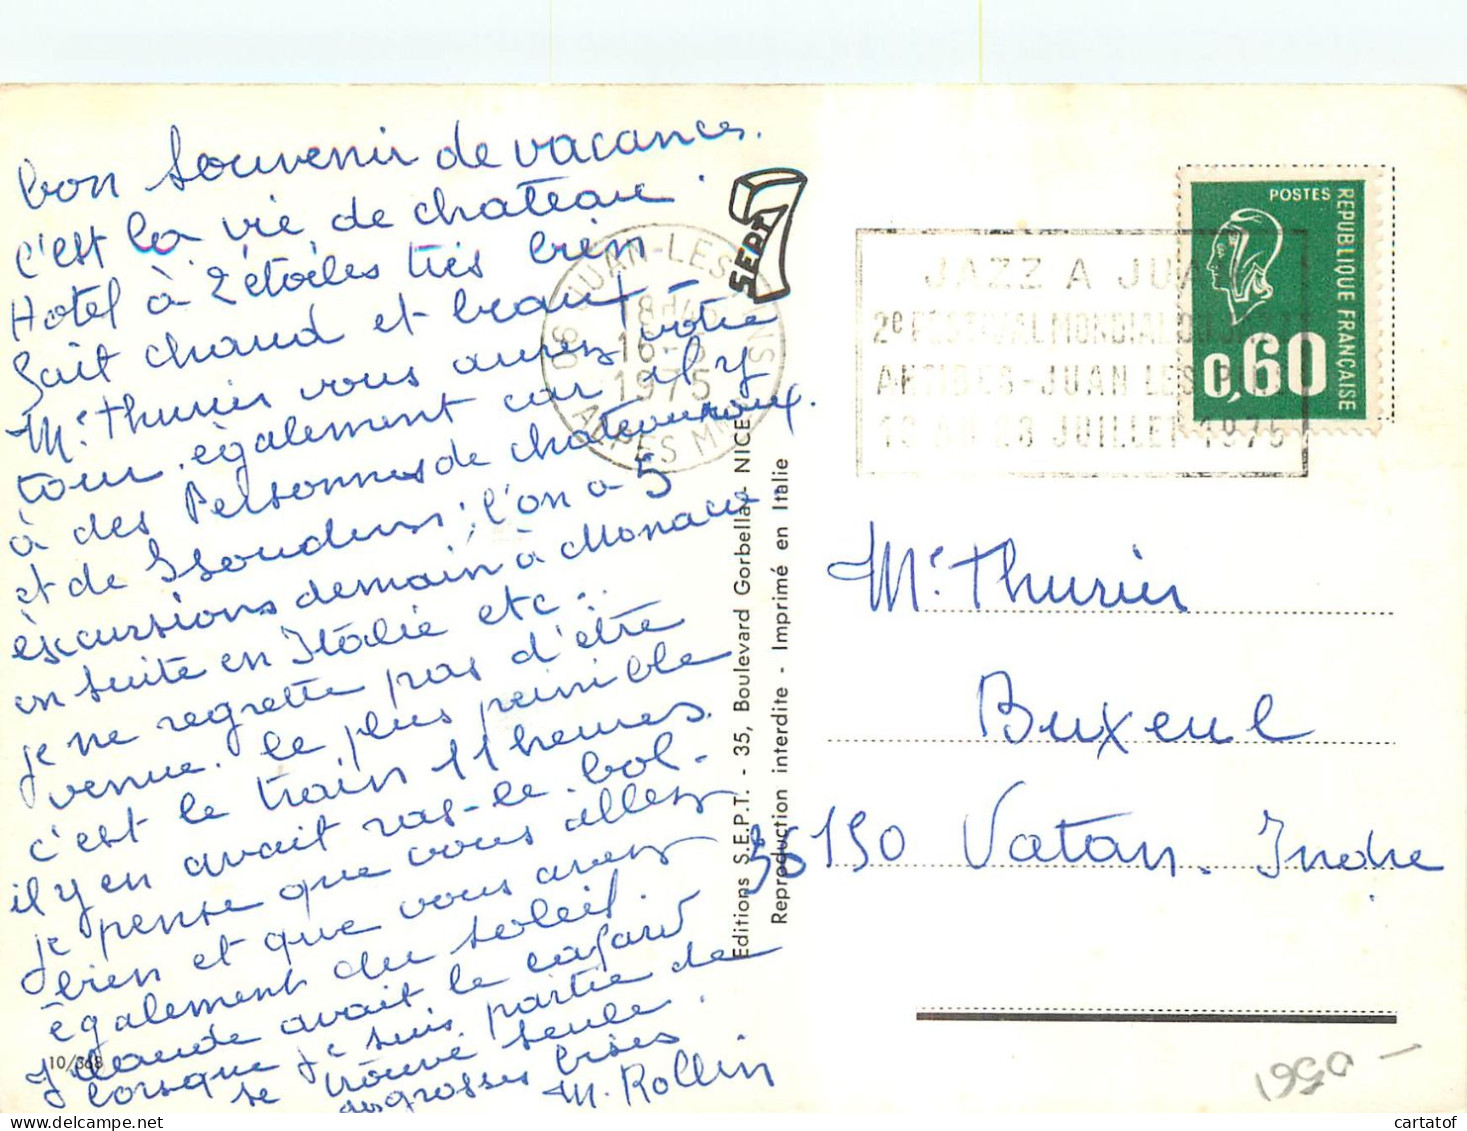 bon souvenir de vacances.
c'est la vie de chateau.
Hotel à 2 étoiles très bien
fait chaud et beau
Me Thurier vous aurez votre
tour également car il y
à des Personnes de chateauroux.
et de Issoudun; l'on a 5
éxcursions demain à Monaco
en suite en Italie etc..
je ne regrette pas d'être
venue. le plus peinible
c'est le train 11 heures.
il y en avait ras-le-bol.
je pense que vous allez
bien et que vous avez
également du soleil.
Claude avait le cafard
lorsque je suis partie de
se trouvé seule.
grosses bises
M. Rollin
10/368
SEPT
06 JUAN-LES-PINS
18H45
16-6
1975
ALPES MMES
Editions S.E.P.T. - 35, Boulevard Gorbella - NICE
Reproduction interdite - Imprimé en Italie
JAZZ A JUAN
2e FESTIVAL MONDIAL DU JAZZ
ANTIBES-JUAN LES PINS
JUILLET 1975
POSTES
REPUBLIQUE FRANÇAISE
0,60
Me Thurier
Buxeul
36150 Vatan. Indre
1950 -
cartatof